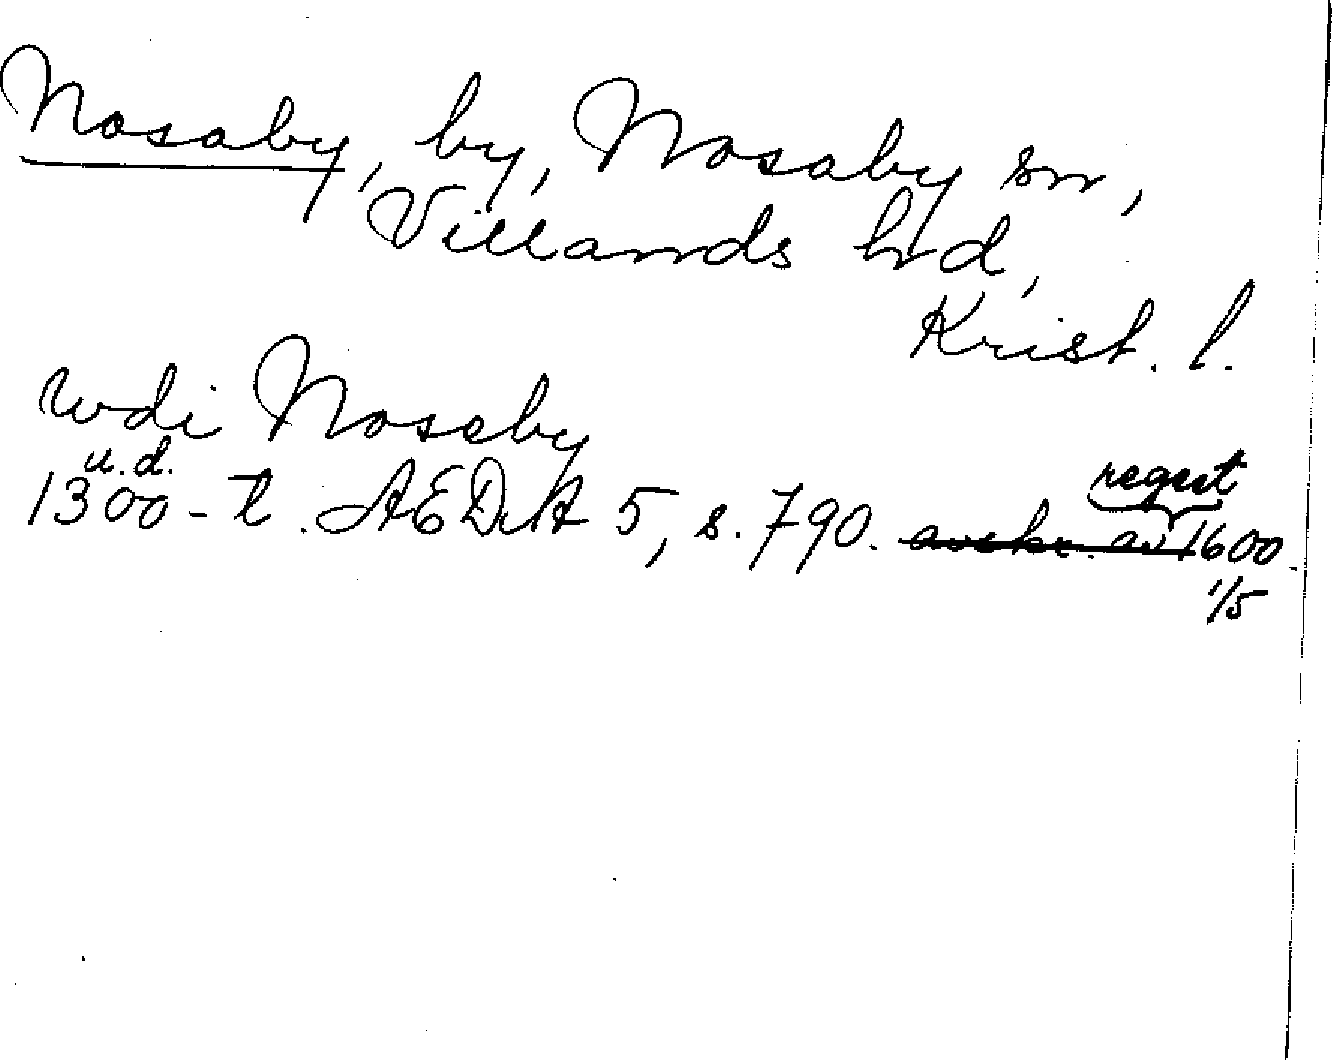 Nosaby, by, Nosaby sn,
Villands hd,
Krist. l.
wdi Noseby
u.d.
1300-t. ÆDA 5, s. 790. avskr. av 1600
regest
1/5